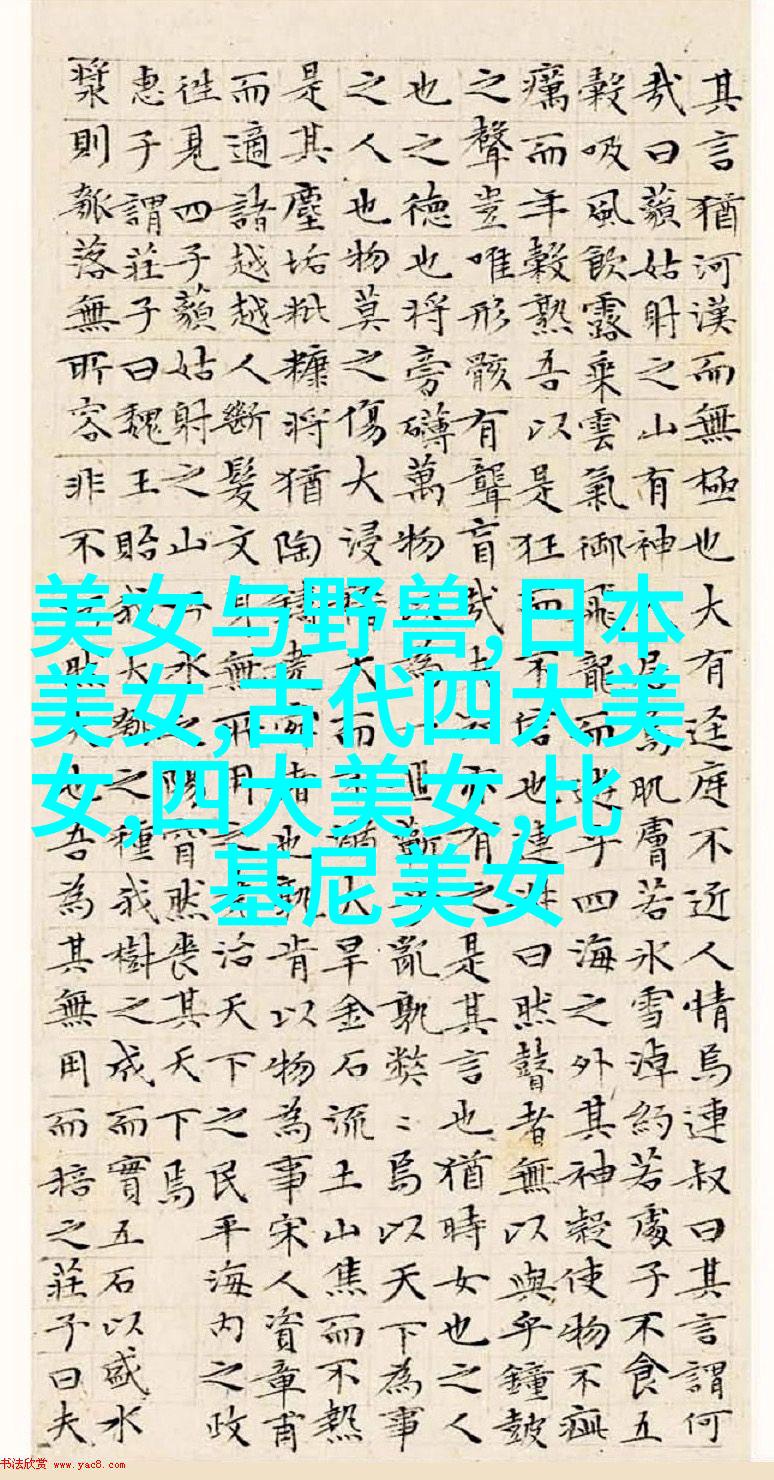 其言猶河漢而無極也大有逕庭不近人情焉連叔曰其言謂何
哉曰藐姑射之山有神居焉肌膚若氷雪淖約若處子不食五
穀吸風飲露乗雲氣御飛龍而遊乎四海之外其神凝使物不疵
癘而年穀熟吾以是狂而不信也連叔曰然瞽者無以與乎鐘鼓
之聲豈唯形骸有聾盲哉夫亦有之是其言也猶時女也之人
也之德也将旁礴萬物以為一世蘄乎亂孰弊〻焉以天下為事
之人也物莫之傷大浸稽天而不溺大旱金石流土山焦而不熱
是其塵垢粃糠将猶陶鑄堯舜者也孰肯以物為事宋人資章甫
而適諸越越人斷髮文身無所用之堯治天下之民平海内之政
往見四子藐姑射之山汾水之陽窅然喪其天下焉
惠子謂莊子曰魏王貽我大瓠之種我樹之成而實五石以盛水
漿則瓠落無所容非不然大也吾為其無用而掊之莊子曰夫
美女与野兽,日本
美女,古代四大美
女,四大美女,比
基尼美女
书法欣赏 www.yac8.com